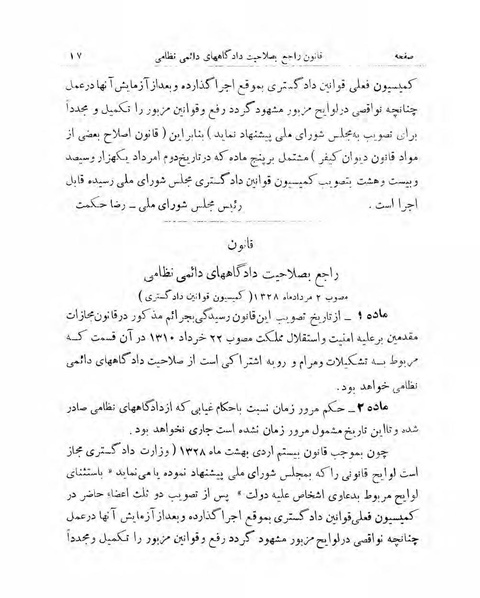 صفحه قانون راجع بصلاحیت دادگاههای دائمی نظامی ۱۷
کمیسیون فعلی قوانین دادگستری بموقع اجرا گذارده و بعد از آزمایش آنها در عمل
چنانچه نواقصی در لوایح مزبور مشهود گردد رفع و قوانین مزبور را تکمیل و مجدداً
برای تصویب به مجلس شورای ملی پیشنهاد نماید ) بنابراین ( قانون اصلاح بعضی از
مواد قانون دیوان کیفر ) مشتمل بر پنج ماده که در تاریخ دوم امرداد یکهزار و سیصد
و بیست و هشت بتصویب کمیسیون قوانین دادگستری مجلس شورای ملی رسیده قابل
اجرا است . رئیس مجلس شورای ملی ـ رضا حکمت
قانون
راجع بصلاحیت دادگاههای دائمی نظامی
مصوب ۲ مردادماه ۱۳۲۸ ( کمیسیون قوانین دادگستری )
ماده ۱ ـ از تاریخ تصویب این قانون رسیدگی بجرائم مذکور در قانون مجازات
مقدمین بر علیه امنیت و استقلال مملکت مصوب ۲۲ خرداد ۱۳۱۰ در آن قسمت که
مربوط به تشکیلات و مرام و رویه اشتراکی است از صلاحیت دادگاههای دائمی
نظامی خواهد بود .
ماده ۲ ـ حکم مرور زمان نسبت باحکام غیابی که از دادگاههای نظامی صادر
شده و تا این تاریخ مشمول مرور زمان نشده است جاری نخواهد بود .
چون بموجب قانون بیستم اردی بهشت ماه ۱۳۲۸ ( وزارت دادگستری مجاز
است لوایح قانونی را که بمجلس شورای ملی پیشنهاد نموده یا می‌نماید « باستثنای
لوایح مربوط بدعاوی اشخاص علیه دولت » پس از تصویب دو ثلث اعضاء حاضر در
کمیسیون فعلی قوانین دادگستری بموقع اجرا گذارده و بعد از آزمایش آنها در عمل
چنانچه نواقصی در لوایح مزبور مشهود گردد رفع و قوانین مزبور را تکمیل و مجدداً